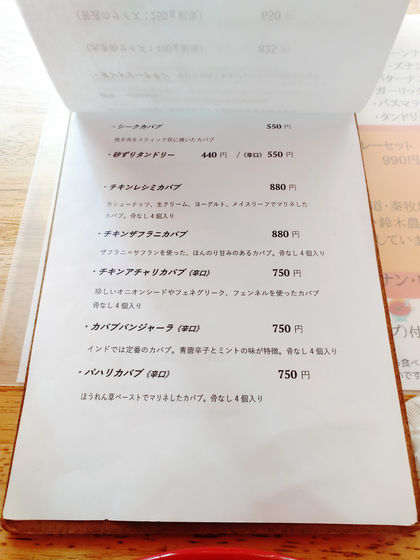 ・シークカバブ 550円
挽き肉をスティック状に焼いたカバブ
・砂ずりタンドリー 440円 /（辛口）550円
・チキンレシミカバブ 880円
カシューナッツ、生クリーム、ヨーグルト、メイスリーフでマリネした
カバブ。骨なし4個入り
・チキンザフラニカバブ 880円
ザフラニ=サフランを使った、ほんのり甘みのあるカバブ。骨なし4個入り
・チキンアチャリカバブ（辛口） 750円
珍しいオニオンシードやフェネグリーク、フェンネルを使ったカバブ
骨なし4個入り
・カバブバンジャーラ（辛口） 750円
インドでは定番のカバブ。青唐辛子とミントの味が特徴。骨なし4個入り
・パハリカバブ（辛口） 750円
ほうれん草ペーストでマリネしたカバブ。骨なし4個入り
ガーリック
バスマ
タンドリ
レーセット
990円
道・秦牧
鈴木農
してい
ナン・
）付